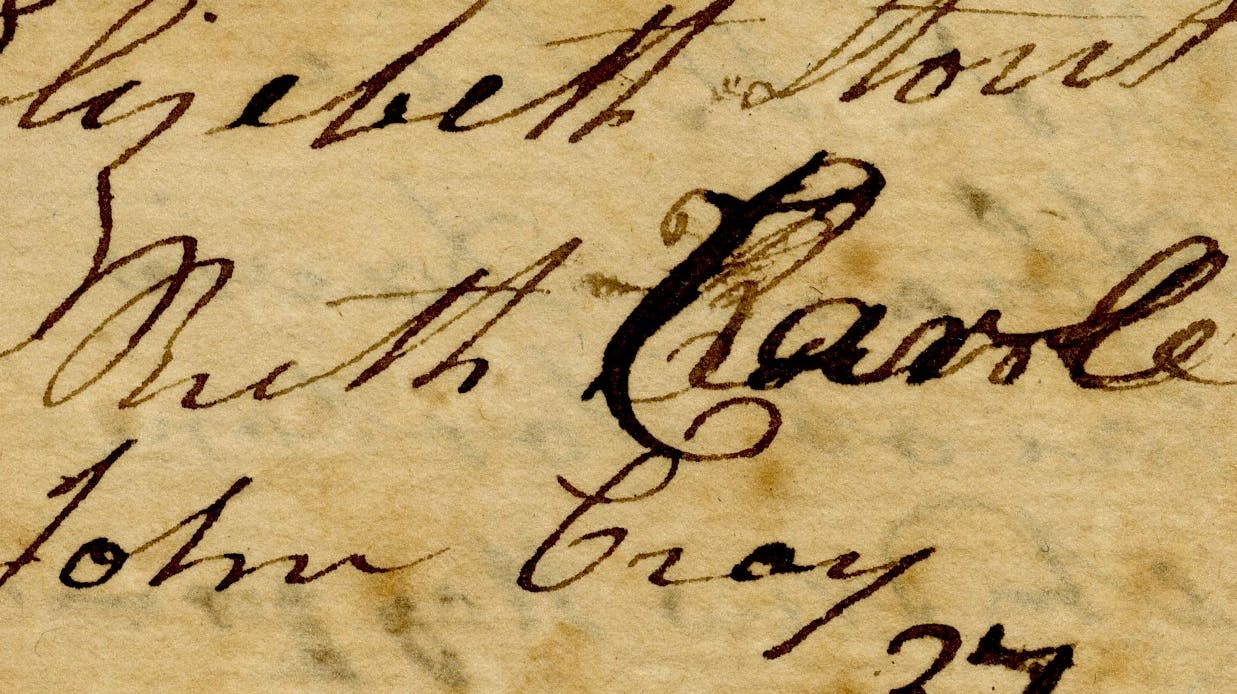 Elizebeth Stout
Ruth Carole
John Cray
37